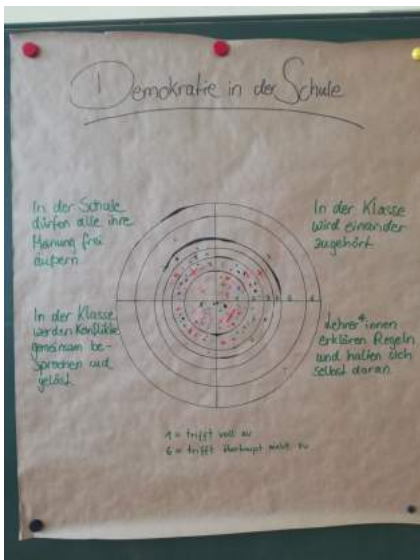 Demokratie in der Schule
In der Schule
dürfen alle ihre
Meinung frei
äußern
In der Klasse
wird einander
zugehört
In der Klasse
werden Konflikte
gemeinsam be-
sprochen und
gelöst
Lehrer*innen
erklären Regeln
und halten sich
selbst daran
1 = trifft voll zu
6 = trifft überhaupt nicht zu